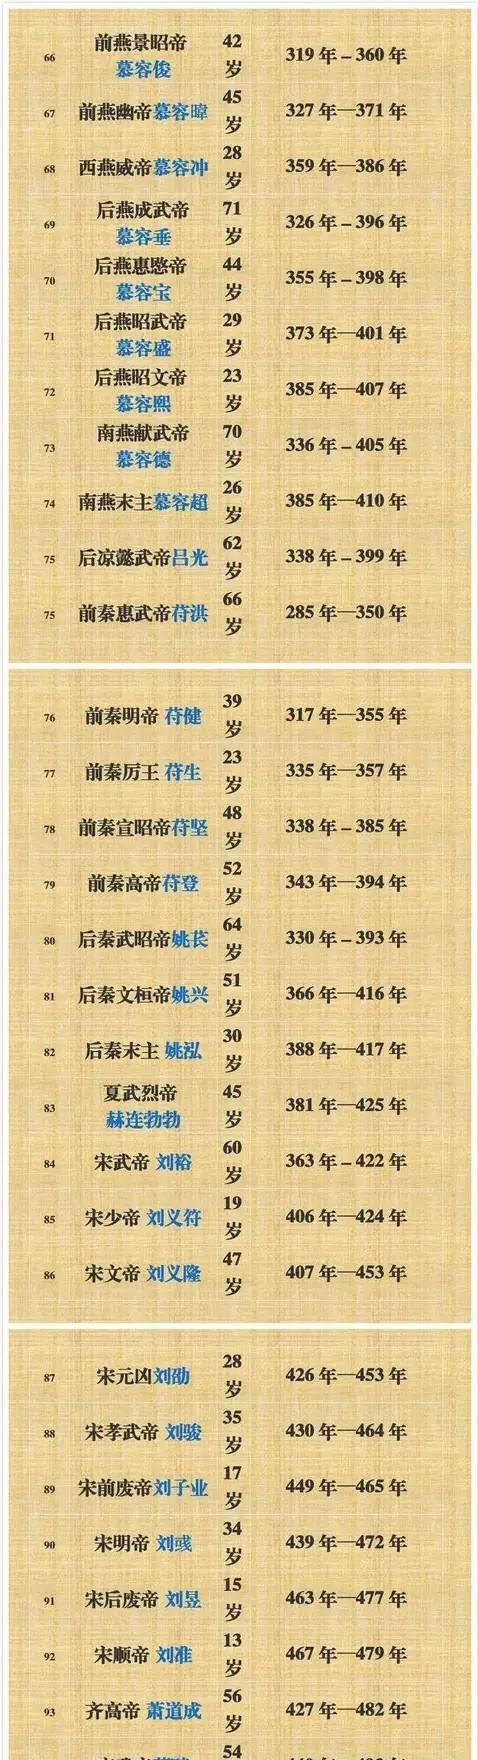 66 前燕景昭帝 42 319 年 – 360 年
慕容俊 岁
67 前燕幽帝慕容暐 45 327 年—371 年
岁
68 西燕威帝慕容冲 28 359 年—386 年
岁
69 后燕成武帝 71 326 年 – 396 年
慕容垂 岁
70 后燕惠愍帝 44 355 年 – 398 年
慕容宝 岁
71 后燕昭武帝 29 373 年—401 年
慕容盛 岁
72 后燕昭文帝 23 385 年—407 年
慕容熙 岁
73 南燕献武帝 70 336 年 – 405 年
慕容德 岁
74 南燕末主慕容超 26 385 年—410 年
岁
75 后凉懿武帝吕光 62 338 年 – 399 年
岁
75 前秦惠武帝苻洪 66 285 年—350 年
岁
76 前秦明帝 苻健 39 317 年—355 年
岁
77 前秦厉王 苻生 23 335 年—357 年
岁
78 前秦宣昭帝苻坚 48 338 年 – 385 年
岁
79 前秦高帝苻登 52 343 年—394 年
岁
80 后秦武昭帝姚苌 64 330 年 – 393 年
岁
81 后秦文桓帝姚兴 51 366 年—416 年
岁
82 后秦末主 姚泓 30 388 年—417 年
岁
83 夏武烈帝 45 381 年—425 年
赫连勃勃 岁
84 宋武帝 刘裕 60 363 年 – 422 年
岁
85 宋少帝 刘义符 19 406 年—424 年
岁
86 宋文帝 刘义隆 47 407 年—453 年
岁
87 宋元凶刘劭 28 426 年—453 年
岁
88 宋孝武帝 刘骏 35 430 年—464 年
岁
89 宋前废帝刘子业 17 449 年—465 年
岁
90 宋明帝 刘彧 34 439 年—472 年
岁
91 宋后废帝 刘昱 15 463 年—477 年
岁
92 宋顺帝 刘准 13 467 年—479 年
岁
93 齐高帝 萧道成 56 427 年—482 年
岁
54